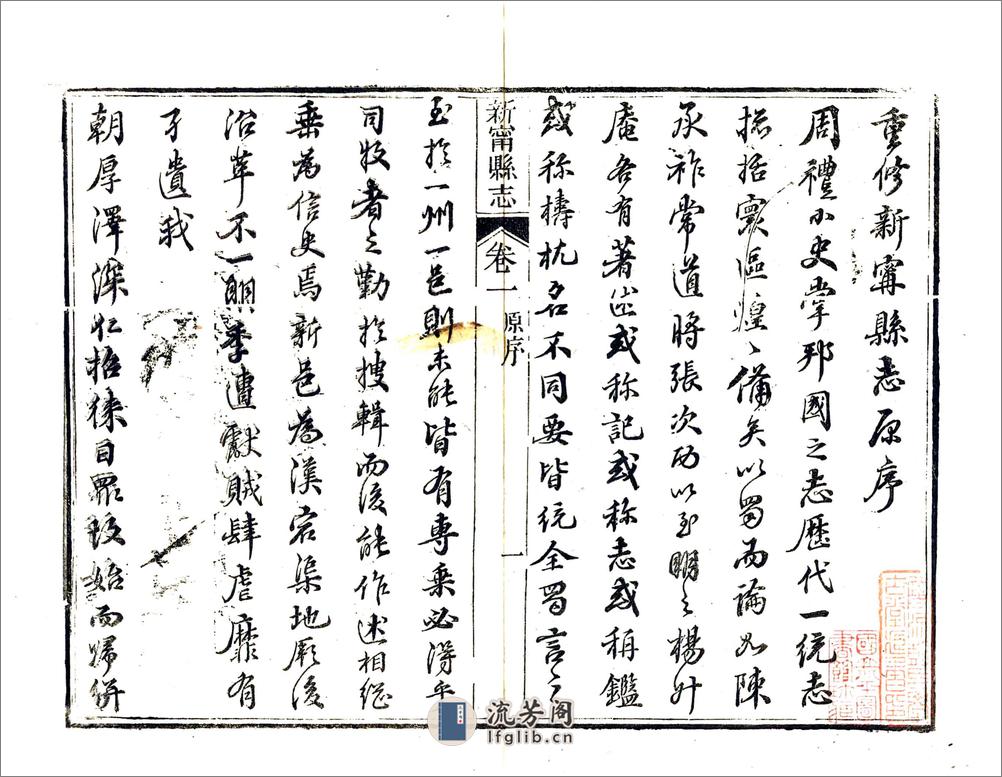 重修新甯縣志原序
周禮小史掌邦國之志歷代一統志
括寰區煌〻備矣以蜀而論如陳
承祚常道將張次功以至明之楊升
菴各有著述或称記或称志或稱鑑
或称檮杌名不同要皆统全蜀言之
至於一州一邑則未能皆有專乗必得平
司牧者之勤於搜輯而後能作述相繼
垂為信史焉新邑為漢宕渠地厥後
沿革不一明季遭獻賊肆虐靡有
孑遺我
朝厚澤深仁招徠目眾始而歸併
新甯縣志
卷一
原序
一
流芳阁
lfglib.cn